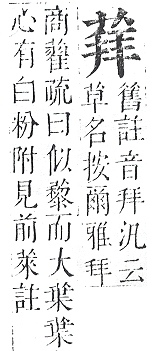 舊註音拜汎云
草名按爾雅拜
商藋疏曰似藜而大葉葉
心有白粉附見前萊註